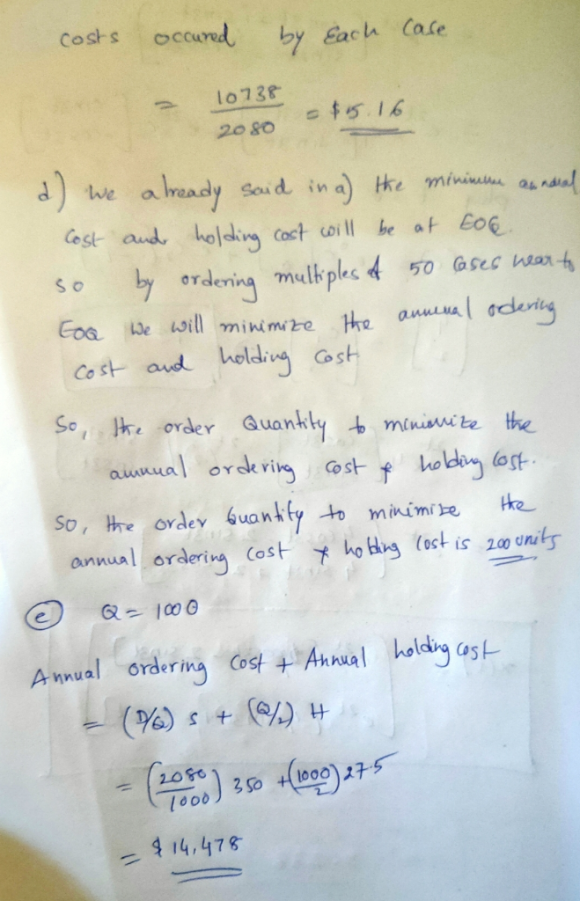 Costs occured by Each Case
= 10738/2080 = $5.16
d) We already said in a) the minimum annual
Cost and holding cost will be at EOQ.
so by ordering multiples of 50 Cases near to
EOQ We will minimize the annual ordering
Cost and holding cost
So, the order Quantity to minimize the
annual ordering cost & holding Cost.
So, the order Quantity to minimize the
annual ordering cost & holding Cost is 200 units
(e) Q = 1000
Annual ordering Cost + Annual holding cost
= (D/Q) S + (Q/2) H
= (2080/1000) 350 + (1000/2) 27.5
= $ 14,478